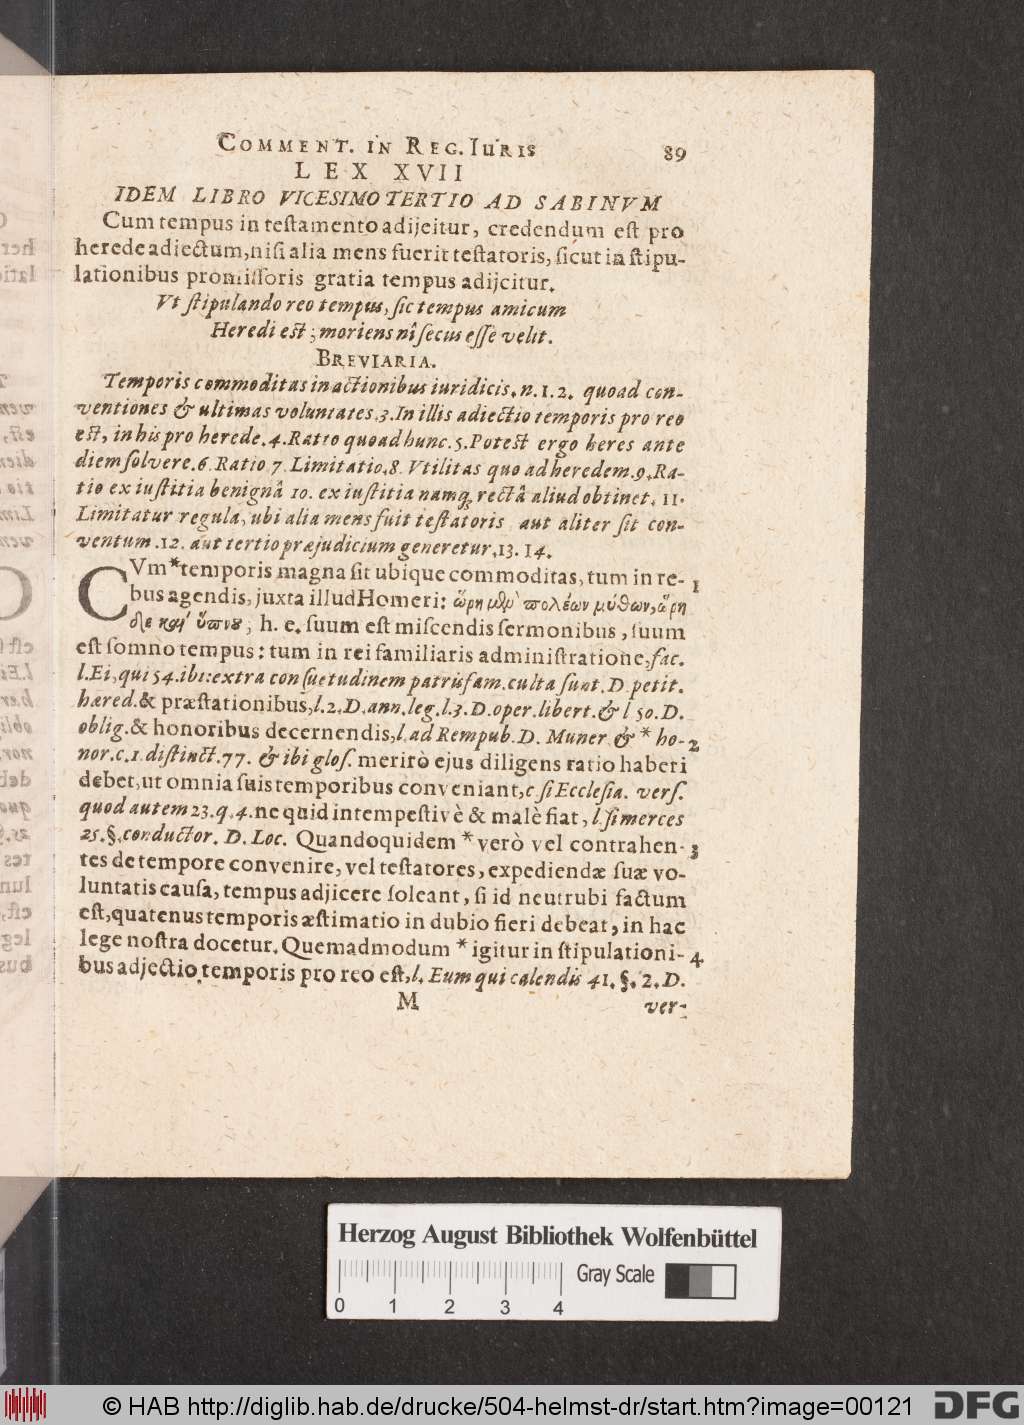 COMMENT. IN REG. IURIS 89
LEX XVII
IDEM LIBRO VICESIMO TERTIO AD SABINVM
Cum tempus in teſtamento adijcitur, credendum eſt pro
herede adiectum, niſi alia mens fuerit teſtatoris, ſicut in ſtipu-
lationibus promiſſoris gratia tempus adijcitur.
Vt ſtipulando reo tempus, ſic tempus amicum
Heredi eſt; moriens nî ſecus eſſe velit.
BREVIARIA.
Temporis commoditas in actionibus iuridicis. n. 1. 2. quoad con-
ventiones & ultimas voluntates. 3. In illis adiectio temporis pro reo
est, in his pro herede. 4. Ratio quoad hunc. 5. Potest ergo heres ante
diem ſolvere. 6. Ratio 7. Limitatio. 8. Vtilitas quo ad heredem. 9. Ra-
tio ex iuſtitia benignâ 10. ex iuſtitia namq; rectâ aliud obtinet. 11.
Limitatur regula, ubi alia mens fuit teſtatoris aut aliter ſit con-
ventum. 12. aut tertio præjudicium generetur. 13. 14.
CVm * temporis magna ſit ubique commoditas, tum in re- 1
bus agendis, juxta illud Homeri: ὥρη μὲν πολέων μύθων, ὥρη
δὲ καὶ ὕπνου, h. e. ſuum eſt miſcendis ſermonibus, ſuum
eſt ſomno tempus: tum in rei familiaris adminiſtratione, fac.
l. Ei, qui 54. ibi: extra conſuetudinem patrisfam. culta ſunt. D. petit.
hæred. & præſtationibus, l. 2. D. ann. leg. l. 3. D. oper. libert. & l 50. D.
oblig. & honoribus decernendis, l. ad Rempub. D. Muner & * ho- 2
nor. c. 1. diſtinct. 77. & ibi gloſ. meritò ejus diligens ratio haberi
debet, ut omnia ſuis temporibus conveniant, c. ſi Eccleſia. verſ.
quod autem 23. q. 4. ne quid intempeſtivè & malè fiat, l. ſi merces
25. §. conductor. D. Loc. Quandoquidem * verò vel contrahen- 3
tes de tempore convenire, vel teſtatores, expediendæ ſuæ vo-
luntatis cauſa, tempus adjicere ſoleant, ſi id neutrubi factum
eſt, quatenus temporis æſtimatio in dubio fieri debeat, in hac
lege noſtra docetur. Quemadmodum * igitur in ſtipulationi- 4
bus adjectio temporis pro reo eſt, l. Eum qui calendis 41. §. 2. D.
M ver-
Herzog August Bibliothek Wolfenbüttel
Gray Scale
0 1 2 3 4
© HAB http://diglib.hab.de/drucke/504-helmst-dr/start.htm?image=00121
DFG